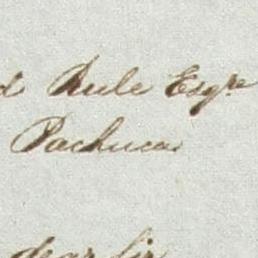 d Rule Esqre
Pachuca
dear Sir